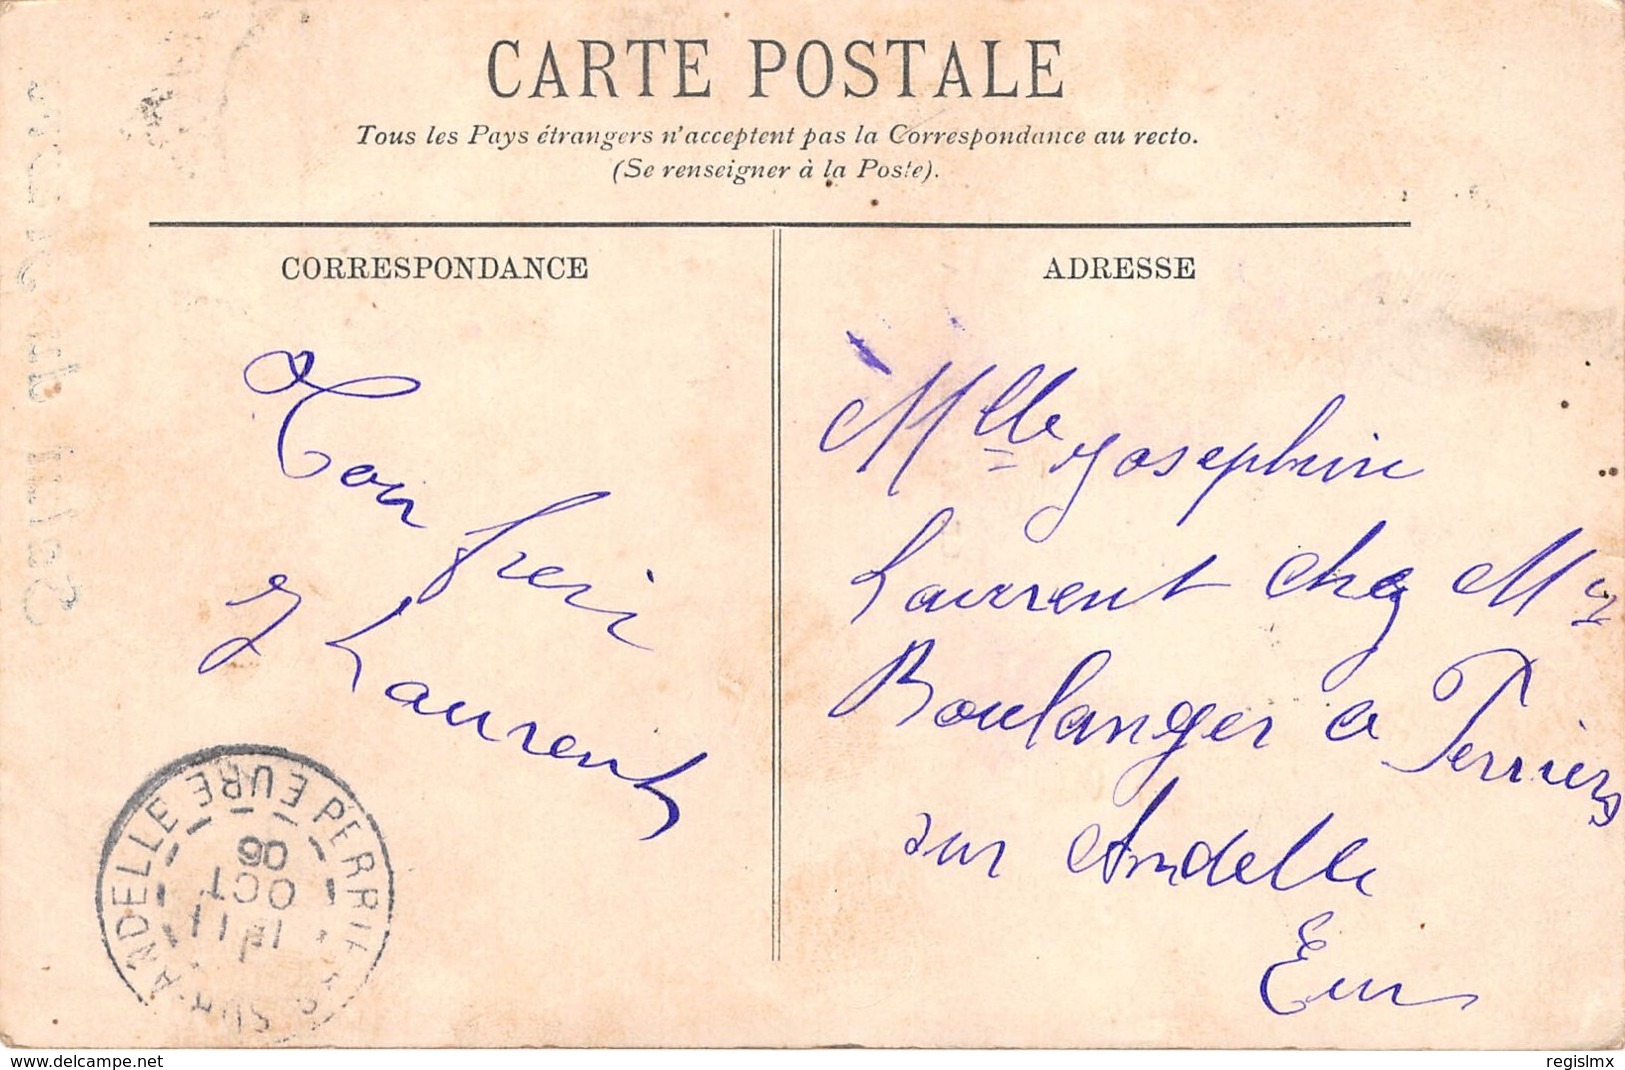 CARTE POSTALE
Tous les Pays étrangers n'acceptent pas la Correspondance au recto.
(Se renseigner à la Poste).
CORRESPONDANCE
ADRESSE
Ton frere
J Laurent
Mlle Josephine
Laurent chez Mr
Boulanger a Perriers
sur Andelle
Eure
PERRIERS SUR ANDELLE EURE
OCT
06
www.delcampe.net
regislmx